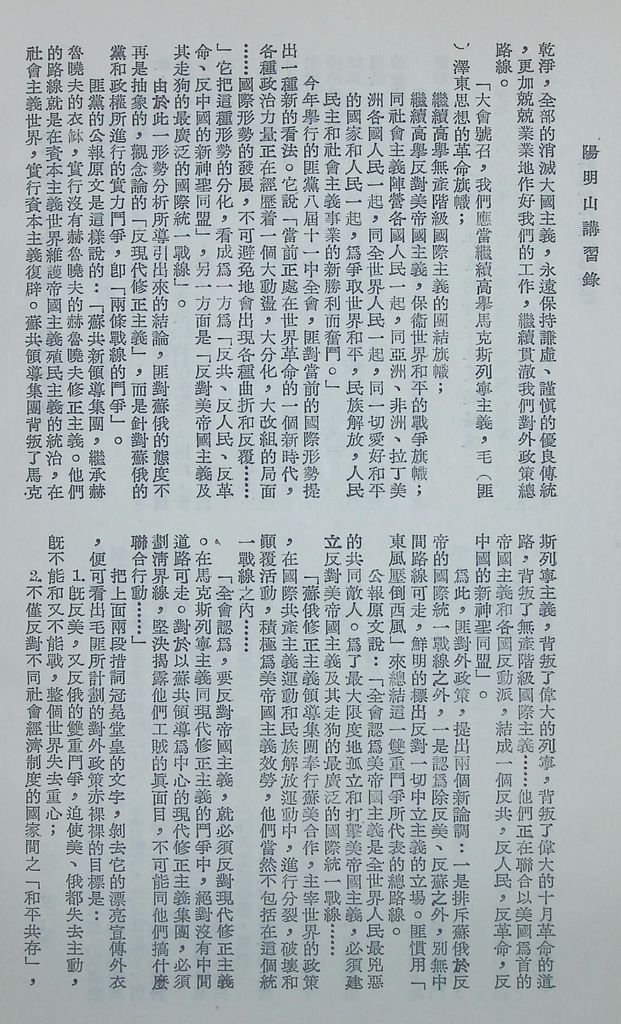 陽明山講習錄
乾淨，全部的消滅大國主義，永遠保持謙虛、謹慎的優良傳統
，更加兢兢業業地作好我們的工作，繼續貫澈我們對外政策總
路線。
「大會號召，我們應當繼續高舉馬克斯列寧主義，毛（匪
）澤東思想的革命旗幟；
繼續高舉無產階級國際主義的團結旗幟；
繼續高舉反對美帝國主義，保衛世界和平的戰爭旗幟；
同社會主義陣營各國人民一起，同亞洲、非洲、拉丁美
洲各國人民一起，同全世界人民一起，同一切愛好和平
的國家和人民一起，爲爭取世界和平，民族解放，人民
民主和社會主義事業的新勝利而奮鬥。」
今年舉行的匪黨八屆十一中全會，匪對當前的國際形勢提
出一種新的看法。它說「當前正處在世界革命的一個新時代，
各種政治力量正在經歷着一個大動盪，大分化，大改組的局面
……國際形勢的發展，不可避免地會出現各種曲折和反覆……
」它把這種形勢的分化，看成爲一方爲「反共、反人民、反革
命、反中國的新神聖同盟」，另一方面是「反對美帝國主義及
其走狗的最廣泛的國際統一戰線」。
由於此一形勢分析所導引出來的結論，匪對蘇俄的態度不
再是抽象的，觀念論的「反現代修正主義」，而是針對蘇俄的
黨和政權所進行的實力鬥爭，卽「兩條戰線的鬥爭」。
匪黨的公報原文是這樣說的：「蘇共新領導集團，繼承赫
魯曉夫的衣鉢，實行沒有赫魯曉夫的赫魯曉夫修正主義。他們
的路線就是在資本主義世界維護帝國主義殖民主義的統治，在
社會主義世界，實行資本主義復辟。蘇共領導集團背叛了馬克
斯列寧主義，背叛了偉大的列寧，背叛了偉大的十月革命的道
路，背叛了無產階級國際主義……他們正在聯合以美國爲首的
帝國主義和各國反動派，結成一個反共，反人民，反革命，反
中國的新神聖同盟」。
爲此，匪對外政策，提出兩個新論調：一是排斥蘇俄於反
帝的國際統一戰線之外，一是認爲除反美、反蘇之外，別無中
間路線可走，鮮明的標出反對一切中立主義的立場。匪慣用「
東風壓倒西風」來總結這一雙重鬥爭所代表的總路線。
公報原文說：「全會認爲美帝國主義是全世界人民最兇惡
的共同敵人。爲了最大限度地孤立和打擊美帝國主義，必須建
立反對美帝國主義及其走狗的最廣泛的國際統一戰線……
「蘇俄修正主義領導集團奉行蘇美合作，主宰世界的政策
，在國際共產主義運動和民族解放運動中，進行分裂，破壞和
顛覆活動，積極爲美帝國主義效勞，他們當然不包括在這個統
一戰線之內……
「全會認爲，要反對帝國主義，就必須反對現代修正主義
。在馬克斯列寧主義同現代修正主義的鬥爭中，絕對沒有中間
道路可走。對於以蘇共領導爲中心的現代修正主義集團，必須
劃淸界線，堅決揭露他們工賊的眞面目，不可能同他們搞什麼
聯合行動……」
把上面兩段措詞冠冕堂皇的文字，剝去它的漂亮宣傳外衣
，便可看出毛匪所計劃的對外政策赤裸裸的目標是：
1.旣反美，又反俄的雙重鬥爭，迫使美、俄都失去主動，
旣不能和又不能戰，整個世界失去重心；
2.不僅反對不同社會經濟制度的國家間之「和平共存」，